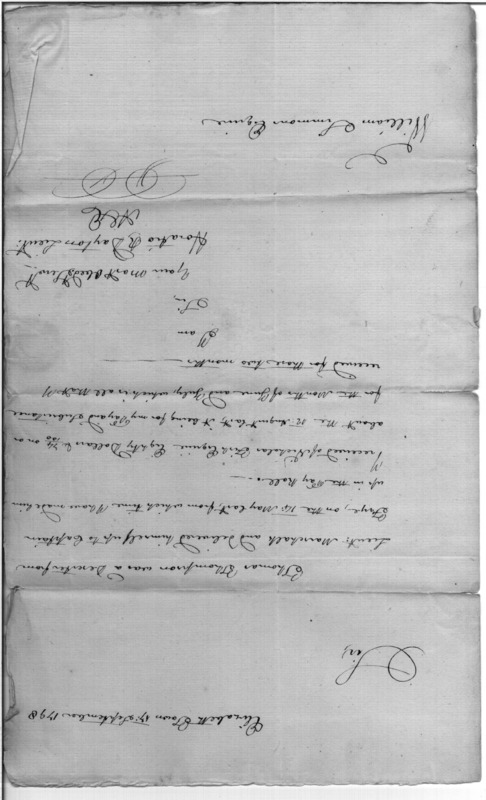 Elizabeth Town 17 September 1798
Sir,
Thomas Thompson was a Deserter from
Lieut. Marshall and delivered himself up to Captain
Frye, on the 15 May last, from which time I have made him
up in the Pay Rolls.—
I received of Nicholas Fish Esquire Eighty Dollars on or
about the 12 August last, it being for my Pay and Subsistance
for the Months of June and July which is all that I
received for those two months
I am
Sir,
Your Most Obedt. Servt.
Horatio R Dayton Lieut.
William Simmons Esquire